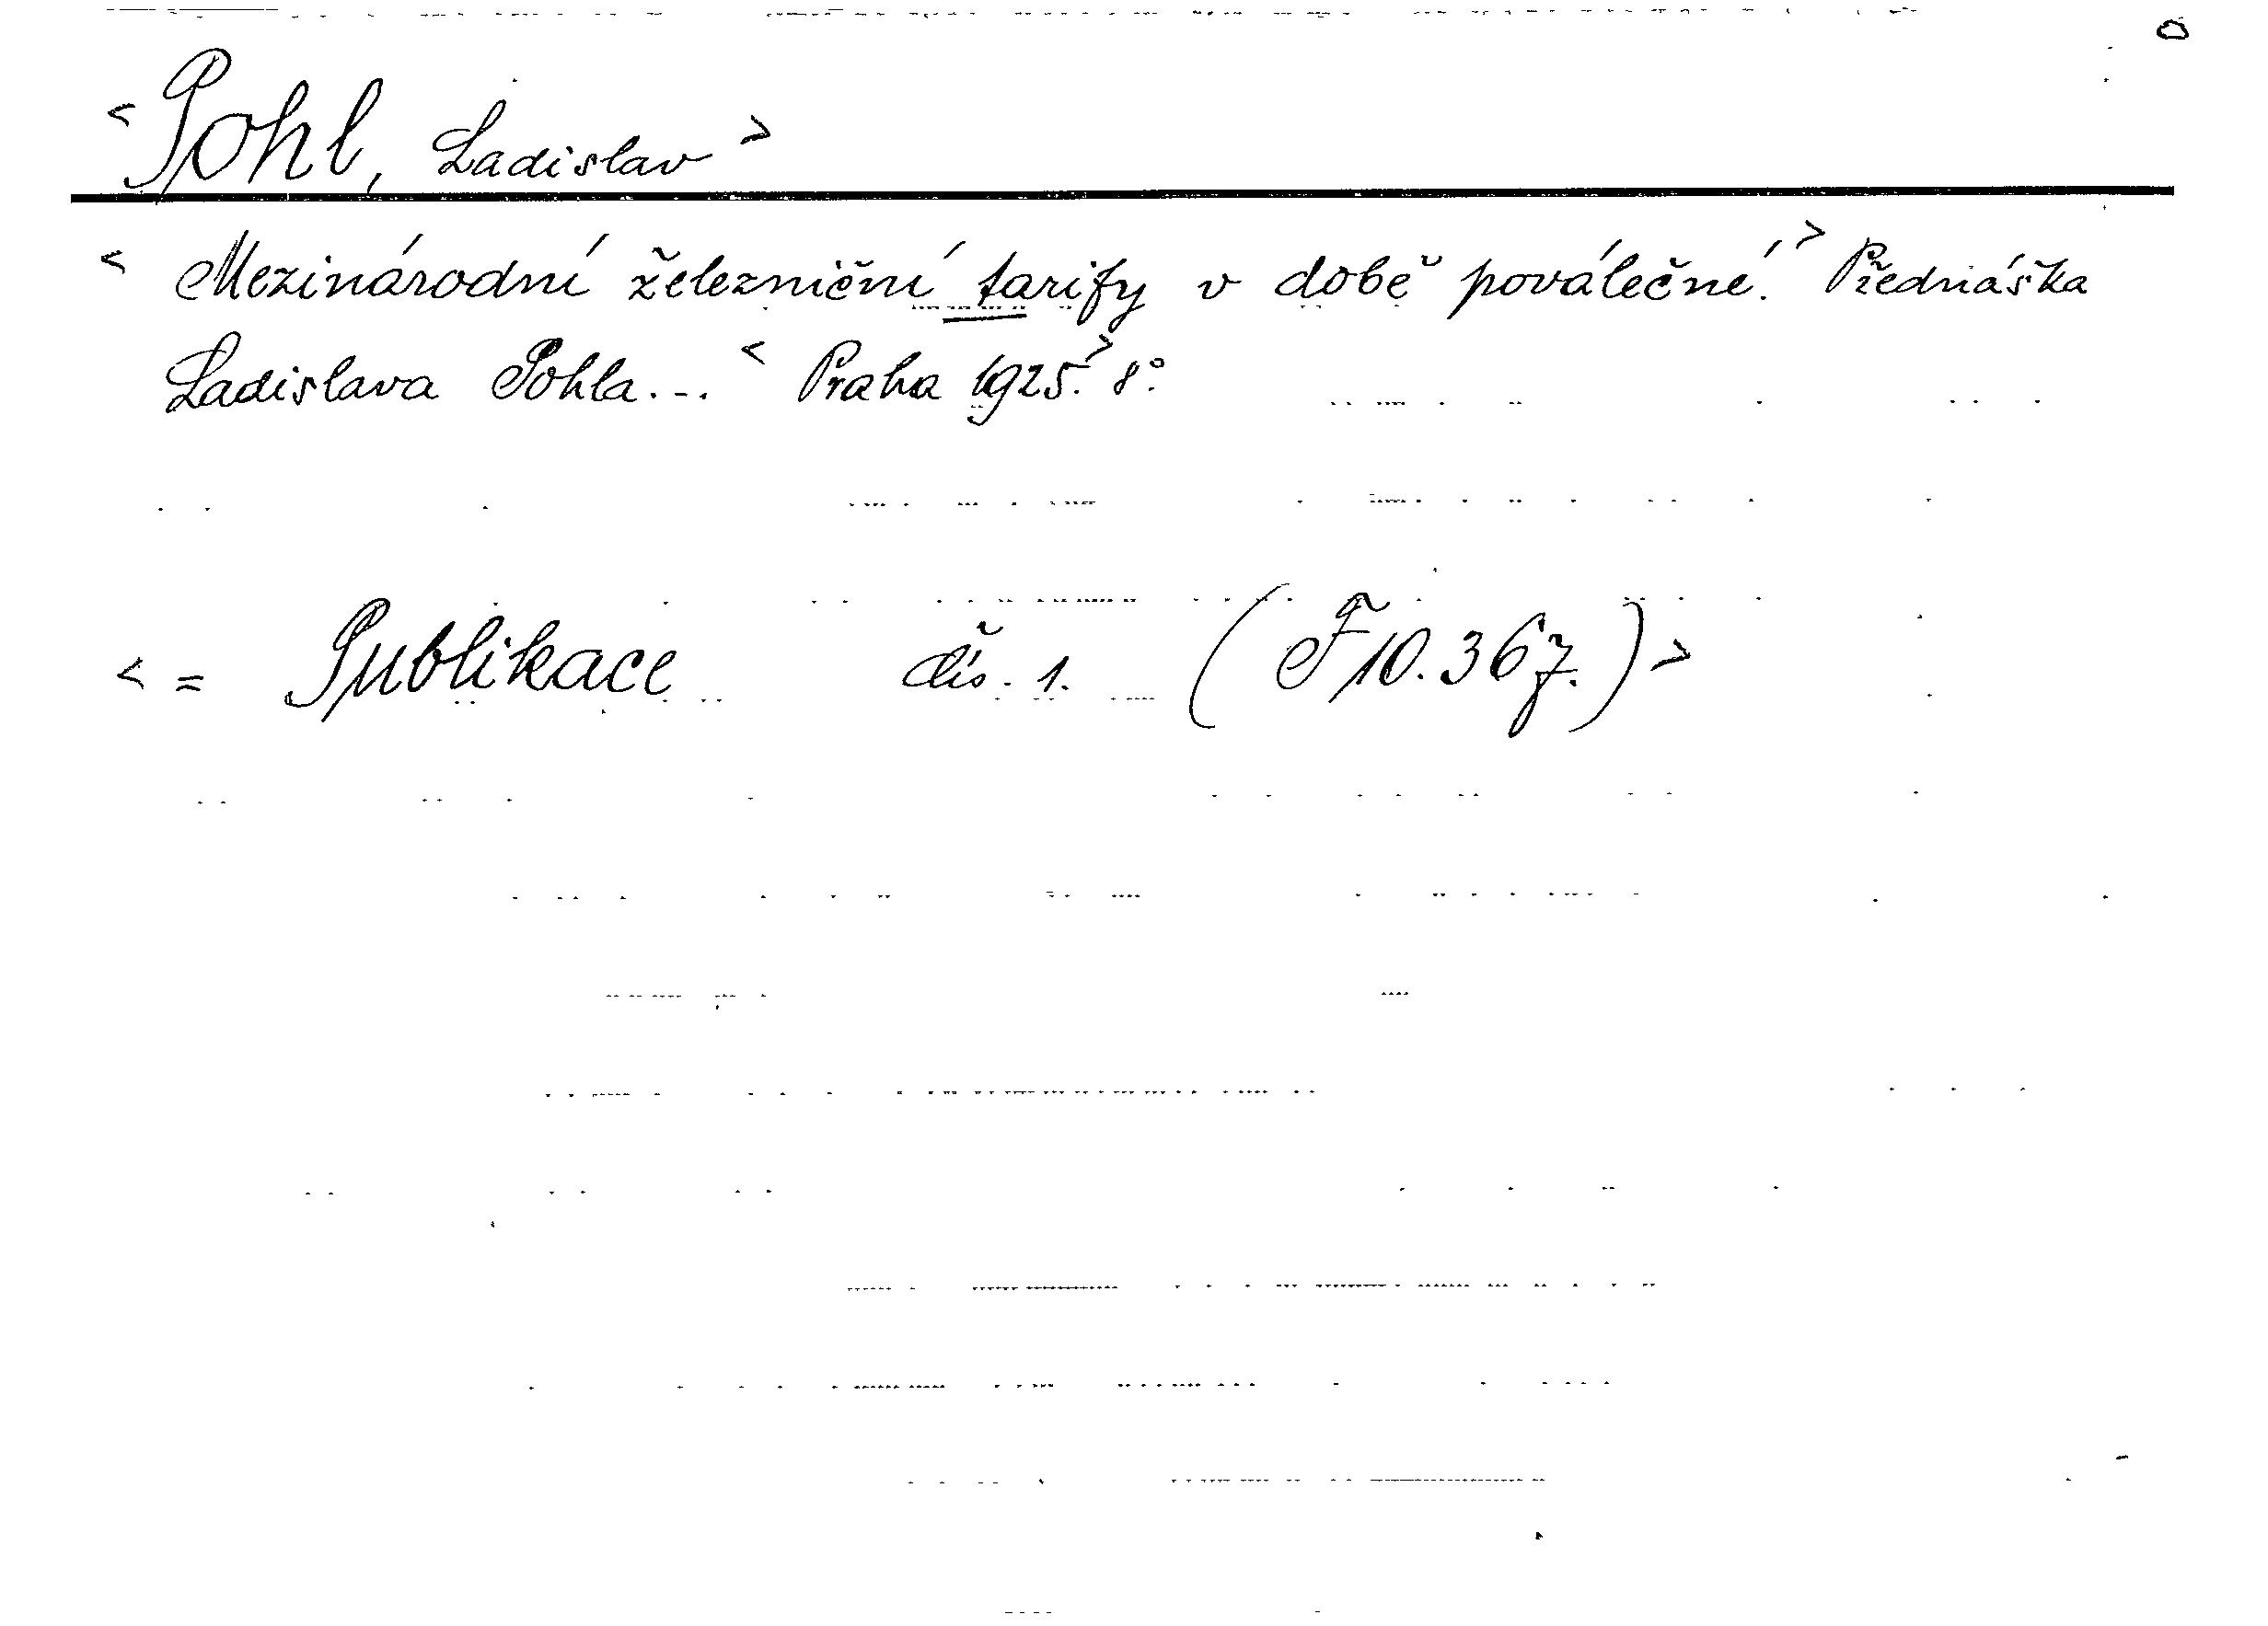 <Pohl, Ladislav>
< Mezinárodní železniční tarify v době poválečné.> Přednáška
Ladislava Pohla... < Praha 1925.> 8°.
< = Publikace čís. 1. (F 10.367.) >